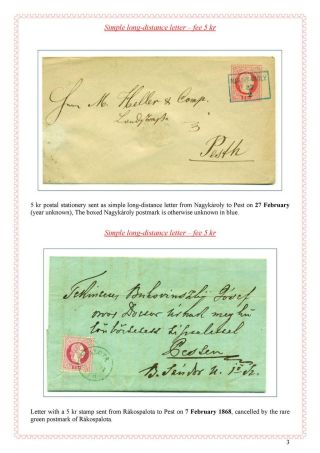 Simple long-distance letter – fee 5 kr
Herrn M. Heller & Comp.
Pesth
5 kr postal stationery sent as simple long-distance letter from Nagykároly to Pest on 27 February
(year unknown), The boxed Nagykároly postmark is otherwise unknown in blue.
Simple long-distance letter – fee 5 kr
József
orvos Doctor úrnak
Pesten
B. Sándor u.
Letter with a 5 kr stamp sent from Rákospalota to Pest on 7 February 1868, cancelled by the rare
green postmark of Rákospalota.
3